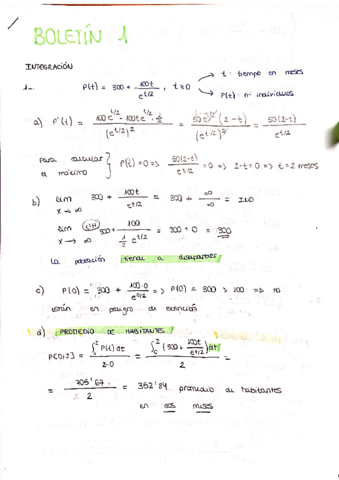 BOLETÍN 1
INTEGRACIÓN
1.- P(t) = 300 + 100t/e^(t/2) , t ≥ 0 → t: tiempo en meses
→ P(t): nº individuos
a) P'(t) = (100e^(t/2) - 100t e^(t/2) · 1/2)/(e^(t/2))² = 50e^(t/2)(2-t)/(e^(t/2))² = 50(2-t)/e^(t/2)
para calcular el máximo } P'(t) = 0 => 50(2-t)/e^(t/2) = 0 => 2-t = 0 => t = 2 meses
b) lim x→∞ 300 + 100t/e^(t/2) = 300 + ∞/∞ = IND
lim x→∞ (L'H) 300 + 100/(1/2 e^(t/2)) = 300 + 0 = 300
la población tiende a desaparecer
c) P(0) = 300 + 100·0/e^(0/2) => P(0) = 300 > 100 => no
están en peligro de extinción
d) PROMEDIO DE HABITANTES
P[0,2] = ∫₀² P(t) dt / 2-0 = ∫₀² (300 + 100t/e^(t/2)) dt / 2 =
= 705'67 / 2 = 352'84 promedio de habitantes
en dos meses